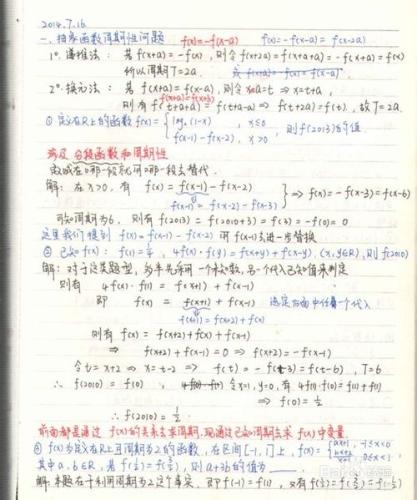 2014.7.16.
一、抽象函数周期性问题 f(x)=-f(x-a) f(x)=-f(x-a)=f(x-2a)
1°. 递推法: 若 f(x+a)=-f(x), 则有 f(x+2a)=f(x+a+a)=-f(x+a)=f(x)
所以周期T=2a.
2°. 换元法: 若 f(x+a)=f(x-a), 则令 x-a=t ⇒ x=t+a,
则有 f(t+a+a)=f(t+a-a) ⇒ f(t+2a)=f(t), 故T=2a.
① 定义在R上的函数 f(x)= { log₂(1-x), x≤0
f(x-1)-f(x-2), x>0, 则f(2013)的值
涉及 分段函数和周期性
解: 在x>0, 有 f(x)=f(x-1)-f(x-2)
f(x-1)=f(x-2)-f(x-3) } ⇒ f(x)=-f(x-3)=f(x-6)
周期为6, 则有 f(2013)=f(2010+3)=f(3)=-f(0)=0
这里我们提到 f(x)=f(x-1)-f(x-2) 用f(x-1)去进一步替换
② 已知 f(x): f(1)=1/4, 4f(x)·f(y)=f(x+y)+f(x-y), (x,y∈R), 则f(2010)
解: 对于这类题型,
则有 4f(x)·f(1)=f(x+1)+f(x-1)
即 f(x)=f(x+1)+f(x-1)
f(x+1)=f(x+2)+f(x)
则有 f(x)=f(x+2)+f(x)+f(x-1)
⇒ f(x+2)+f(x-1)=0 ⇒ f(x+2)=-f(x-1)
令t=x+2 ⇒ x=t-2 ⇒ f(t)=-f(t-3)=f(t-6), T=6
∴ f(2010)=f(0), 令x=1, y=0, 有 4f(1)·f(0)=f(1)+f(1)
⇒ f(0)=1/2
∴ f(2010)=1/2.
前面都是通过 f(x)的关系去求周期, 现通过已知周期去求 f(x)中变量
f(x)为定义在R上且周期为2的函数, 在区间[-1,1]上, f(x)= { ax+1, -1≤x<0
0≤x≤1
其中a.b∈R, 若f(1/2)=f(3/2), 则a+3b的值为
解: 本题在于利用周期为2这个事实, 即f(-1)=f(1), 又有f(1/2)=f(3/2)